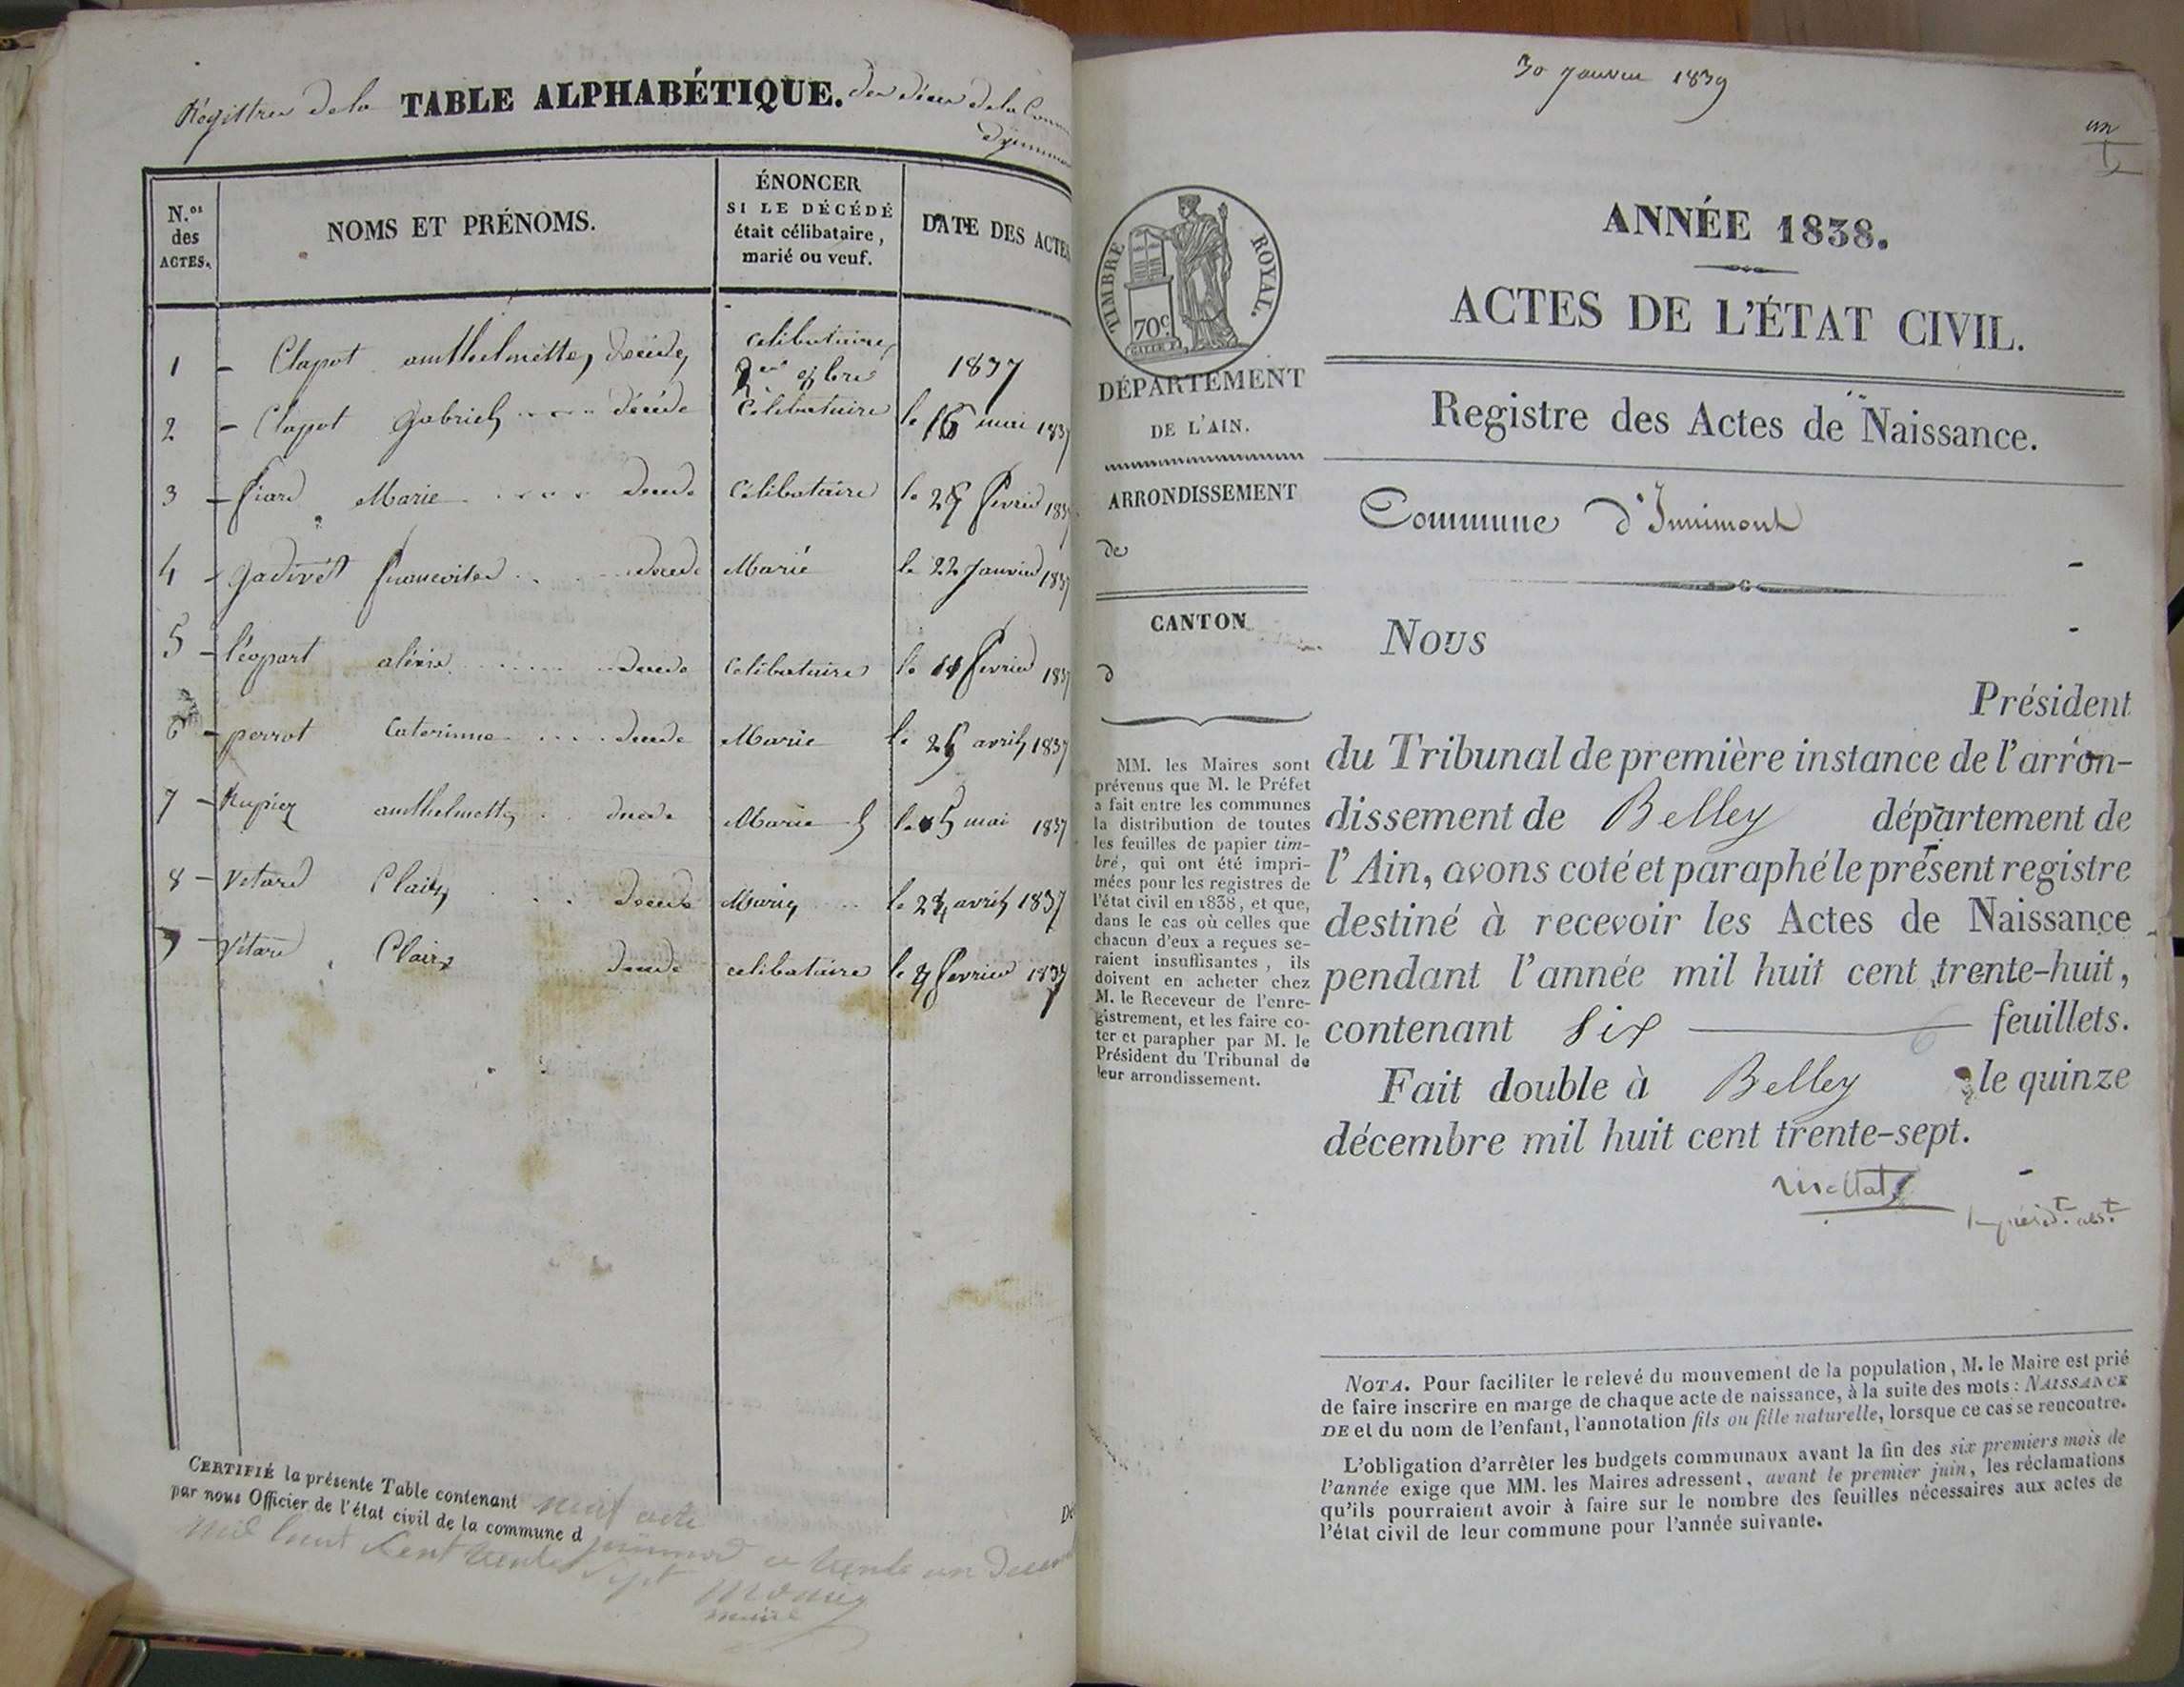 Régistre de la TABLE ALPHABÉTIQUE. des décès de la
N.os des ACTES.
NOMS ET PRÉNOMS.
ÉNONCER
SI LE DÉCÉDÉ
était célibataire,
marié ou veuf.
DATE DES ACTES
1 - Clapot anthelmette, décédé, celibataire 1837
2 - Clapot gabriel .... décédé Célibataire le 16 mai 1837
3 - fiard Marie .... décédé Célibataire le février 1837
4 - gadivet .... décédé Marié le 22 janvier 1837
5 - léopart .... décédé Celibataire le 11 février 1837
6 - perrot Caterinne .... décédé Marié le avril 1837
7 - anthelmette .. décédé Marié le 5 mai 1837
8 - Vetard Claire ... décédé Marié le avril 1837
9 - Vétard Claire décédé celibataire le février 1837
CERTIFIÉ la présente Table contenant neuf acte
par nous Officier de l'état civil de la commune d
mil huit cent trente sept ce trente un
maire
30 janvier 1839
un
1
TIMBRE ROYAL.
70c
ANNÉE 1838.
ACTES DE L'ÉTAT CIVIL.
Registre des Actes de Naissance.
Commune d'Innimont
DÉPARTEMENT
DE L'AIN.
ARRONDISSEMENT
de
CANTON
d
MM. les Maires sont
prévenus que M. le Préfet
a fait entre les communes
la distribution de toutes
les feuilles de papier tim-
bré, qui ont été impri-
mées pour les registres de
l'état civil en 1838, et que,
dans le cas où celles que
chacun d'eux a reçues se-
raient insuffisantes, ils
doivent en acheter chez
M. le Receveur de l'enre-
gistrement, et les faire co-
ter et parapher par M. le
Président du Tribunal de
leur arrondissement.
NOUS
Président
du Tribunal de première instance de l'arron-
dissement de Belley département de
l'Ain, avons coté et paraphé le présent registre
destiné à recevoir les Actes de Naissance
pendant l'année mil huit cent trente-huit,
contenant six 6 feuillets.
Fait double à Belley le quinze
décembre mil huit cent trente-sept.
NOTA. Pour faciliter le relevé du mouvement de la population, M. le Maire est prié
de faire inscrire en marge de chaque acte de naissance, à la suite des mots : NAISSANCE
DE et du nom de l'enfant, l'annotation fils ou fille naturelle, lorsque ce cas se rencontre.
L'obligation d'arrêter les budgets communaux avant la fin des six premiers mois de
l'année exige que MM. les Maires adressent, avant le premier juin, les réclamations
qu'ils pourraient avoir à faire sur le nombre des feuilles nécessaires aux actes de
l'état civil de leur commune pour l'année suivante.